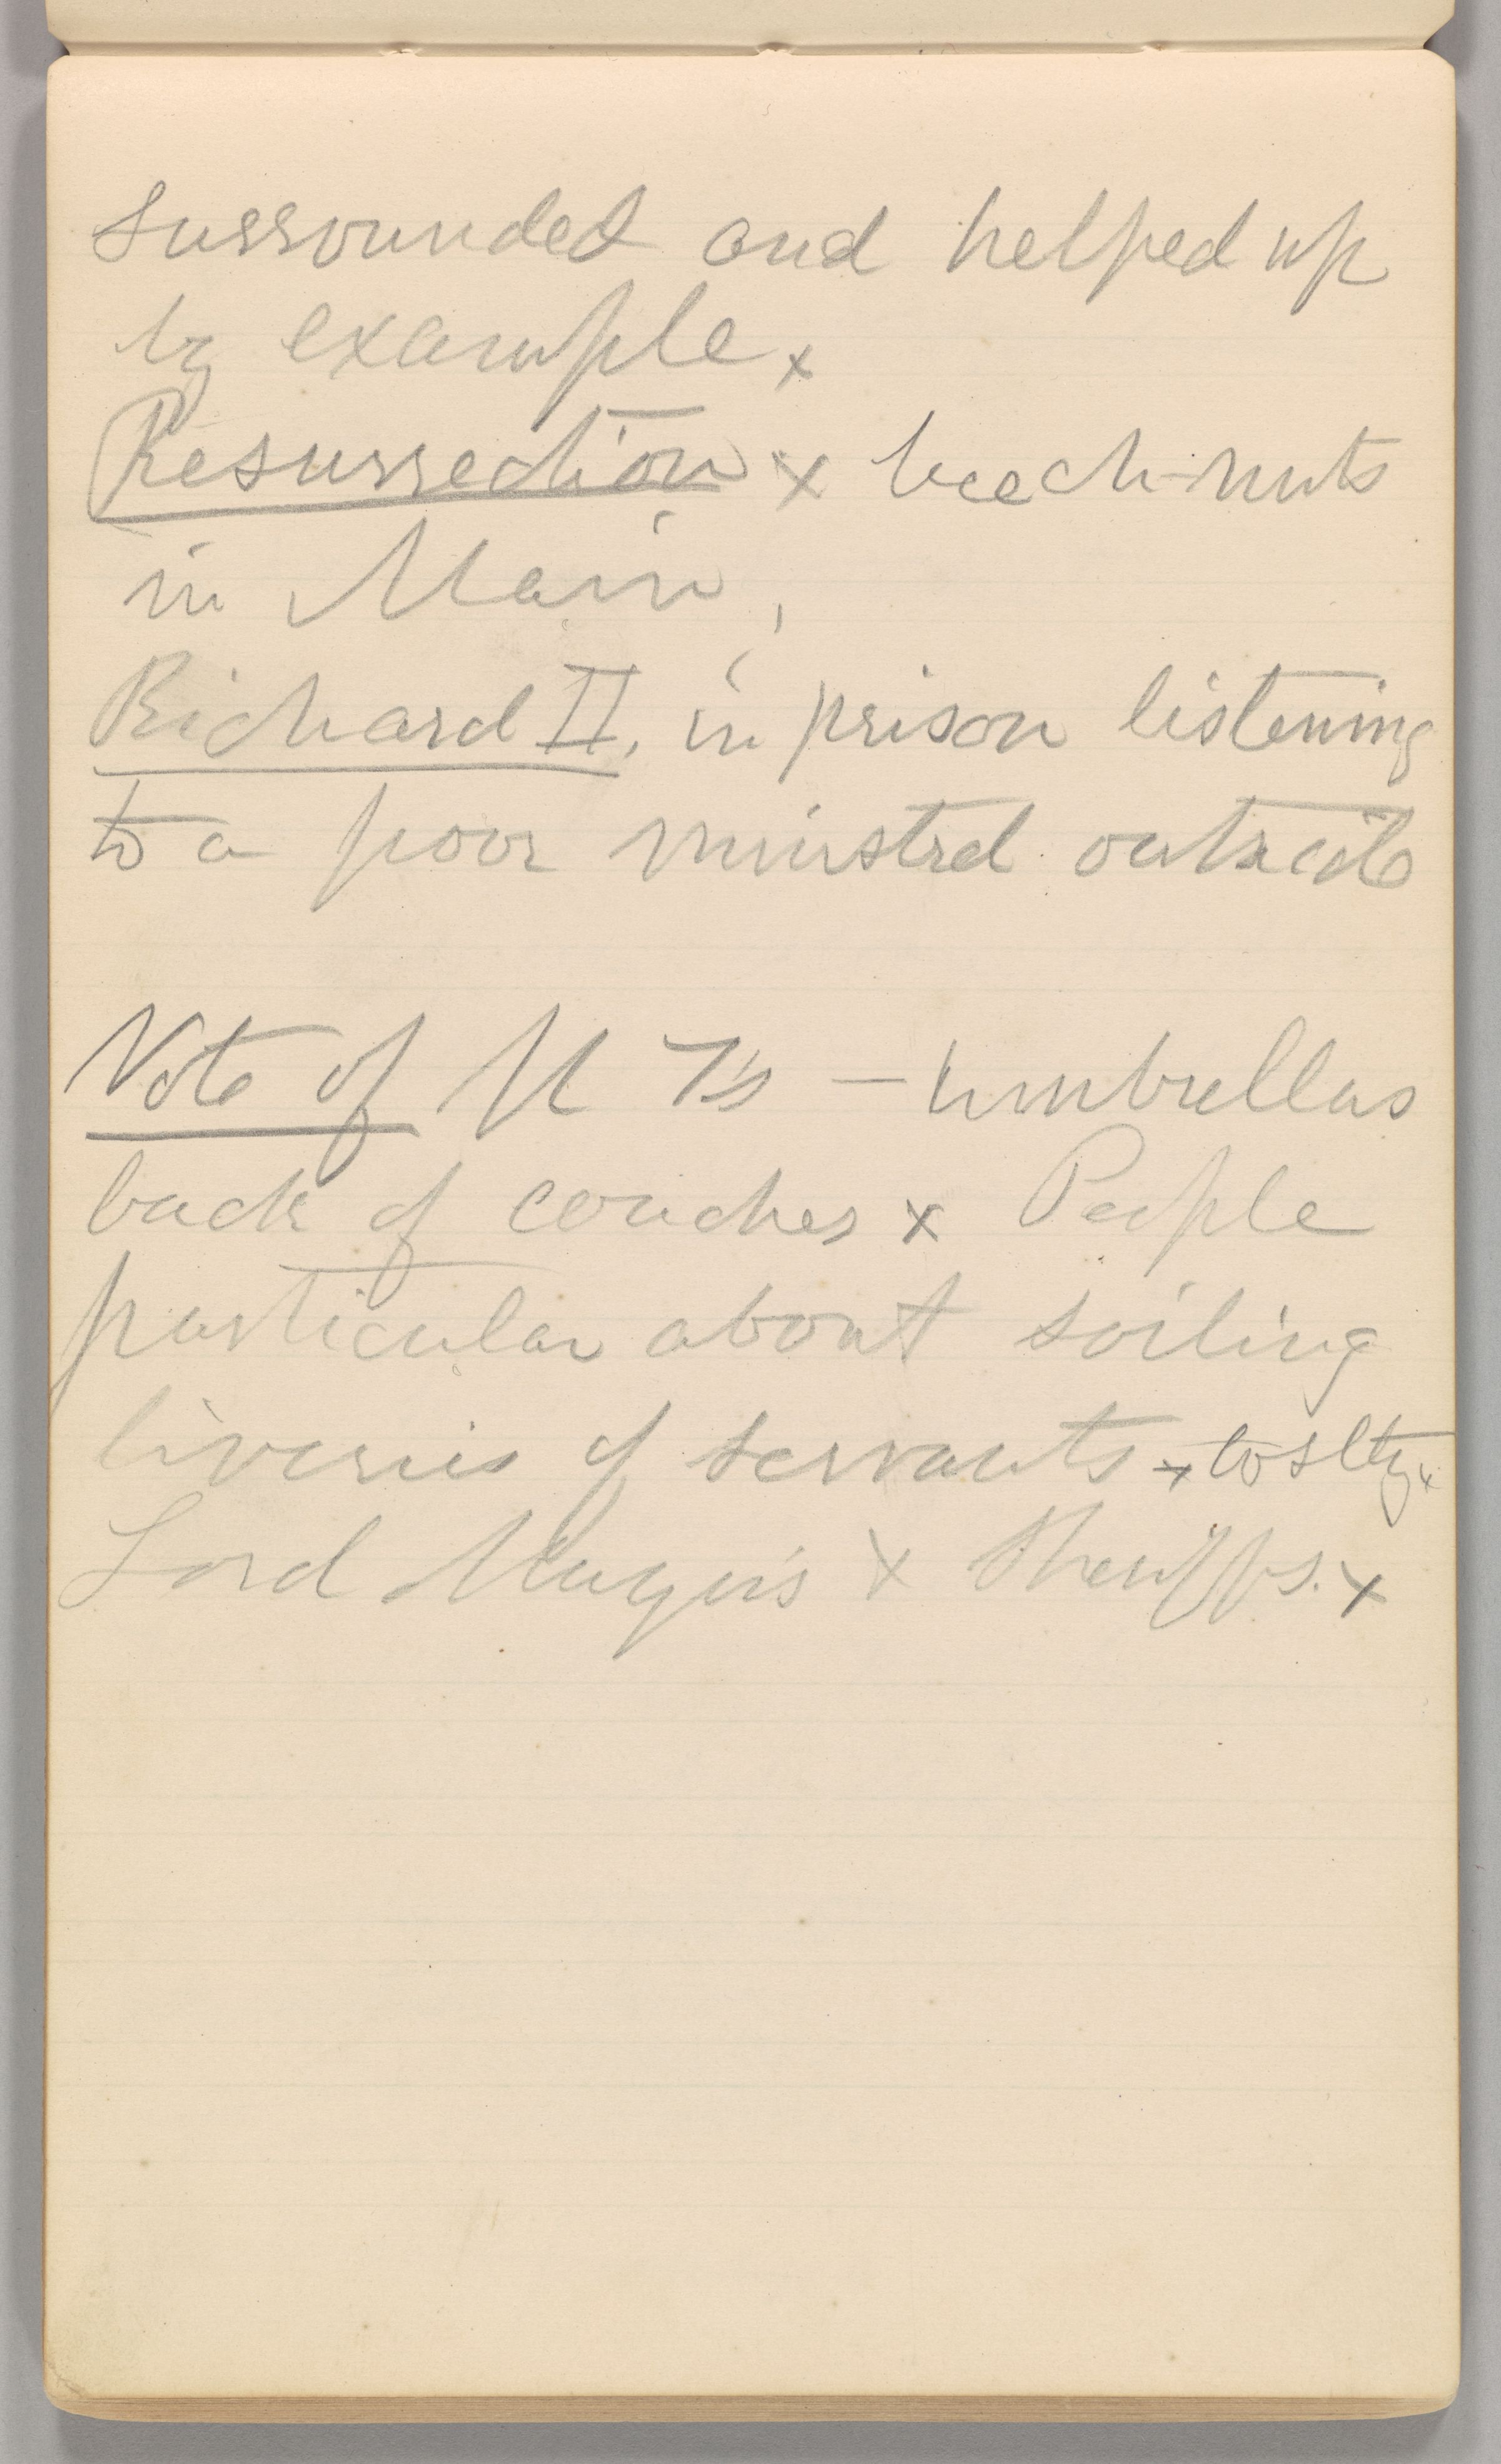 surrounded and helped up
by example x
Resurrection x beech-nuts
in Main,
Richard II. in prison listening
to a poor minstrel outside
Note of M T's — umbrellas
back of couches x People
particular about soiling
liveries of servants x
Lord Mayors x Sheriffs. x